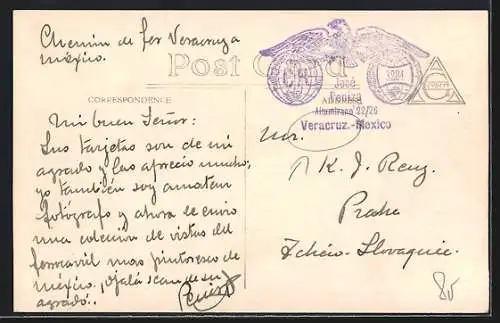 Chemin de fer Veracruz a
México.
Post Card
CORRESPONDENCE
ADDRESS
José
Peniza
Altamirano 22/26
Veracruz.-Mexico
Mi buen Señor:
Sus tarjetas son de mi
agrado y las aprecio mucho;
yo también soy amateur
fotógrafo y ahora le envio
una colección de vistas del
ferrocarril mas pintoresco de
México. ¡Ojalá sean de su
agrado.
Mr.
K. J. Renz.
Praha
Tchéco-Slovaquie.
80